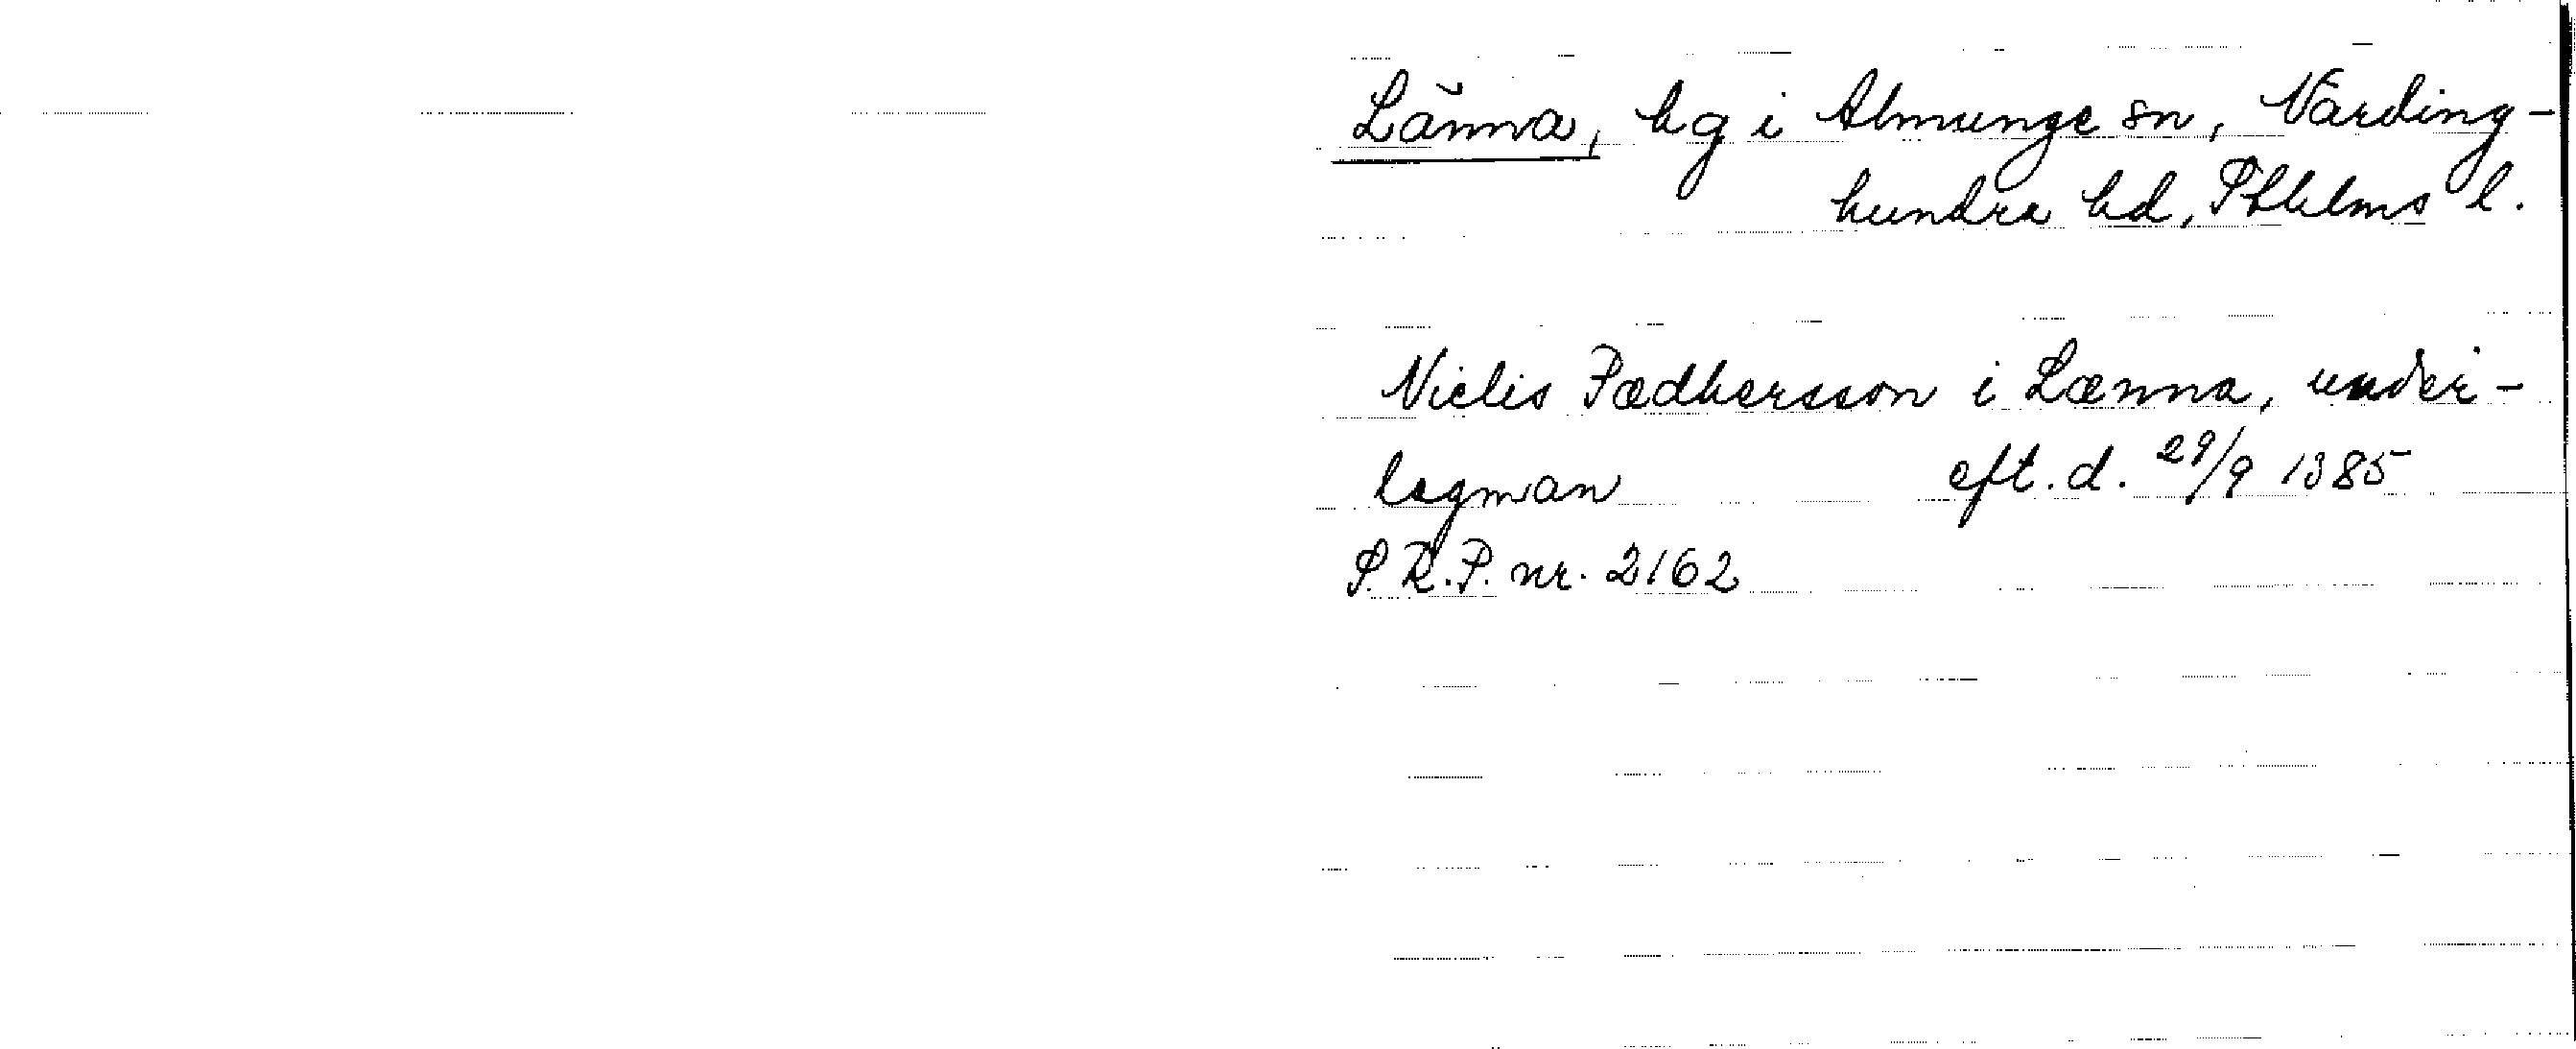 Länna, hg i Almunge sn, Närding-
hundra hd, Sthlms l.
Niclis Pædhersson i Lænna, under-
lagman eft. d. 29/9 1385
S.R.P. nr. 2162